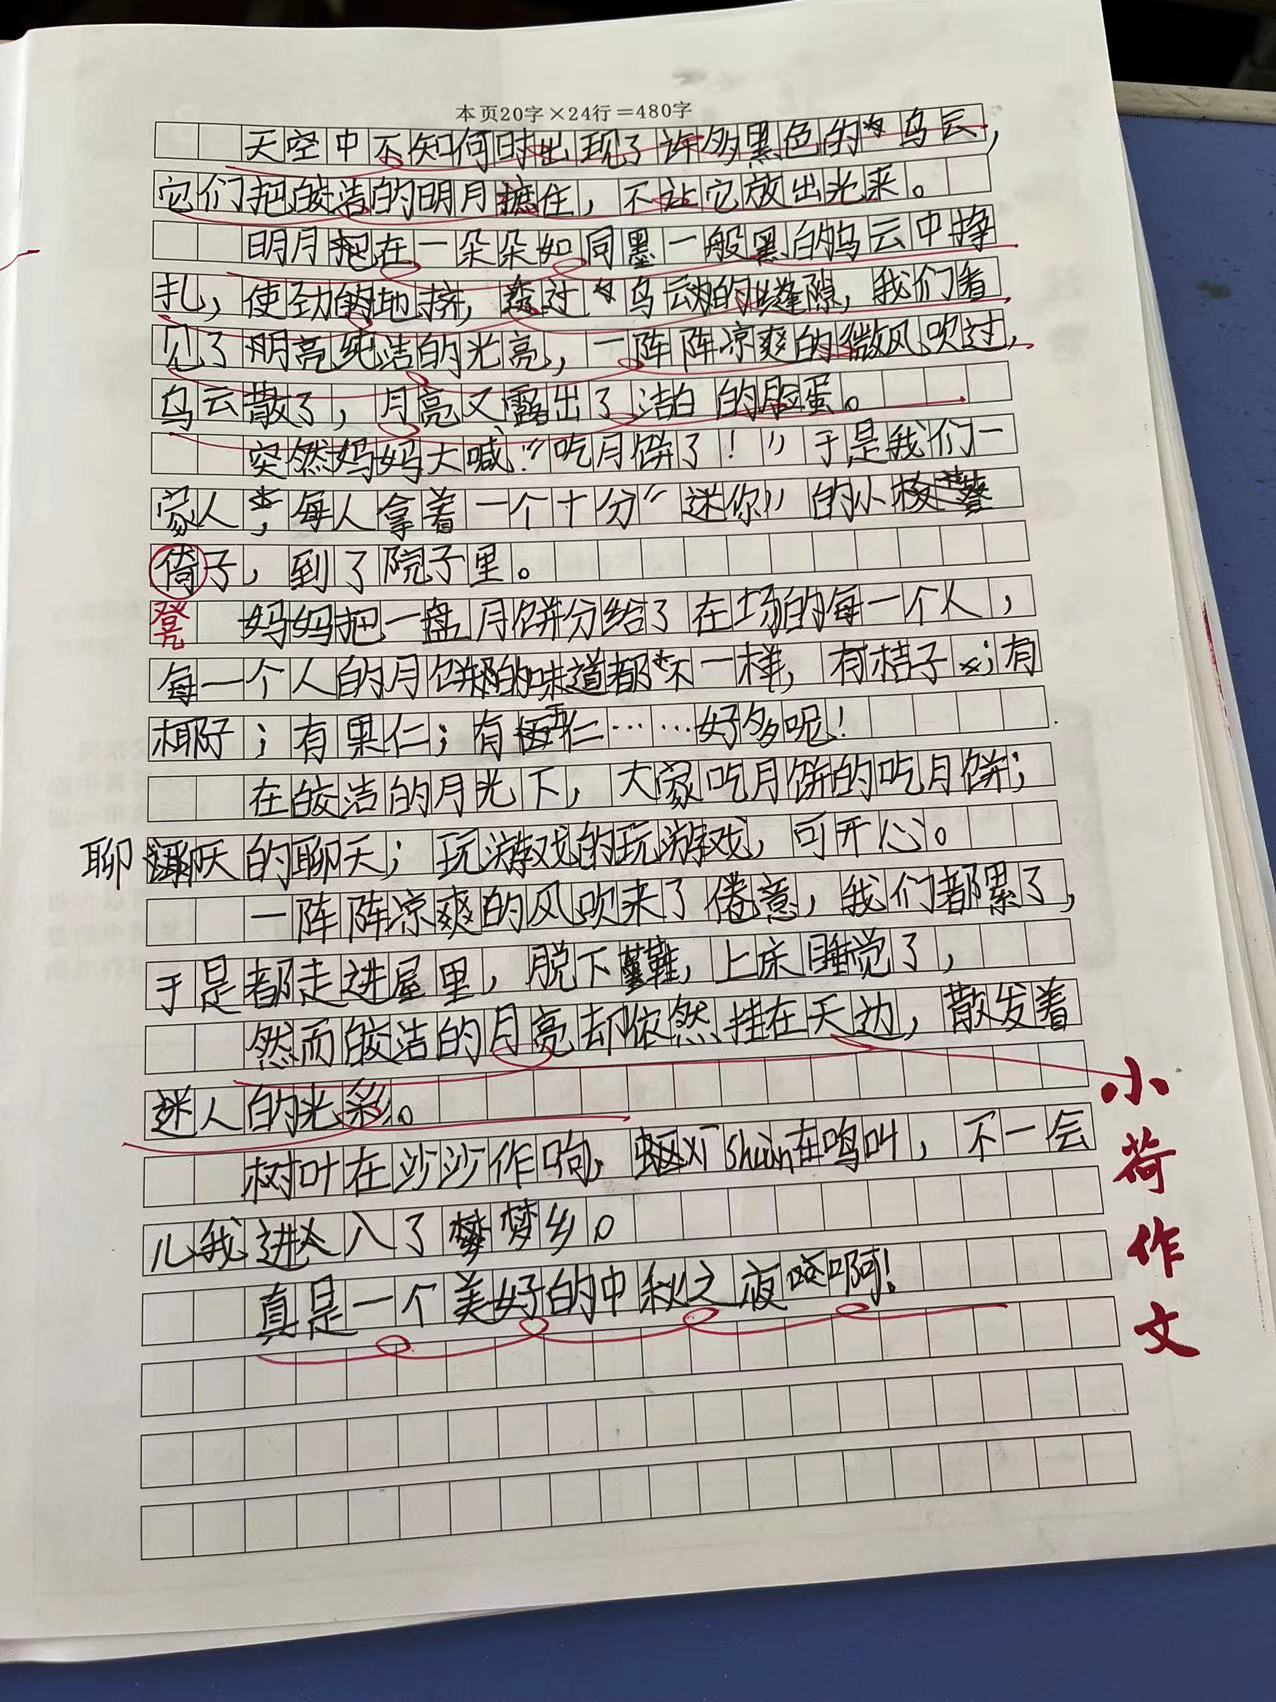 本页20字×24行=480字
天空中不知何时出现了许多黑色的乌云，
它们把皎洁的明月遮住，不让它放出光来。
明月在一朵朵如同墨一般黑的乌云中挣
扎，使劲的地挤，透过乌云的缝隙，我们看
见了明亮纯洁的光亮，一阵阵凉爽的微风吹过，
乌云散了，月亮又露出了洁白的脸蛋。
突然妈妈大喊："吃月饼了！"于是我们一
家人，每人拿着一个十分"迷你"的小板凳
倚子，到了院子里。
凳
妈妈把一盘月饼分给了在场的每一个人，
每一个人的月饼的味道都不一样，有桔子；有
椰子；有果仁；有五仁……好多呢！
在皎洁的月光下，大家吃月饼的吃月饼；
聊天的聊天；玩游戏的玩游戏，可开心。
一阵阵凉爽的风吹来了倦意，我们都累了，
于是都走进屋里，脱下鞋，上床睡觉了，
然而皎洁的月亮却依然挂在天边，散发着
迷人的光彩。
树叶在沙沙作响，在鸣叫，不一会
儿我进入了梦乡。
真是一个美好的中秋之夜啊！
小荷作文